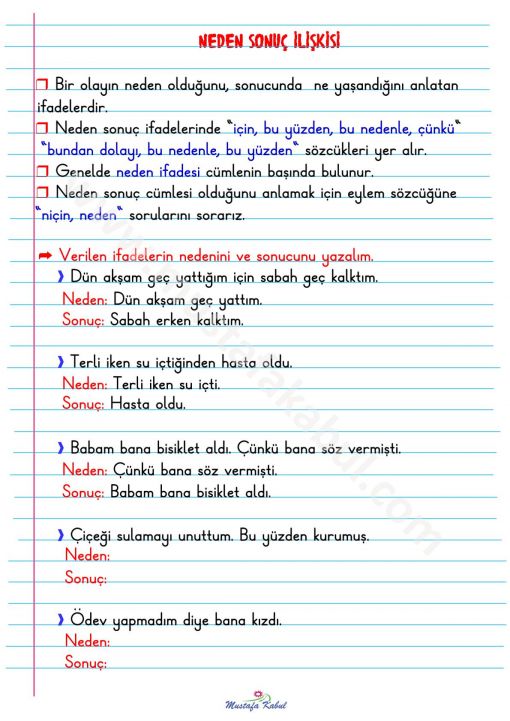 NEDEN SONUÇ İLİŞKİSİ
❒ Bir olayın neden olduğunu, sonucunda ne yaşandığını anlatan
ifadelerdir.
❒ Neden sonuç ifadelerinde “için, bu yüzden, bu nedenle, çünkü“
“bundan dolayı, bu nedenle, bu yüzden“ sözcükleri yer alır.
❒ Genelde neden ifadesi cümlenin başında bulunur.
❒ Neden sonuç cümlesi olduğunu anlamak için eylem sözcüğüne
“niçin, neden“ sorularını sorarız.
➡ Verilen ifadelerin nedenini ve sonucunu yazalım.
❫ Dün akşam geç yattığım için sabah geç kalktım.
Neden: Dün akşam geç yattım.
Sonuç: Sabah erken kalktım.
❫ Terli iken su içtiğinden hasta oldu.
Neden: Terli iken su içti.
Sonuç: Hasta oldu.
❫ Babam bana bisiklet aldı. Çünkü bana söz vermişti.
Neden: Çünkü bana söz vermişti.
Sonuç: Babam bana bisiklet aldı.
❫ Çiçeği sulamayı unuttum. Bu yüzden kurumuş.
Neden:
Sonuç:
❫ Ödev yapmadım diye bana kızdı.
Neden:
Sonuç:
Mustafa Kabul
www.mustafakabul.com